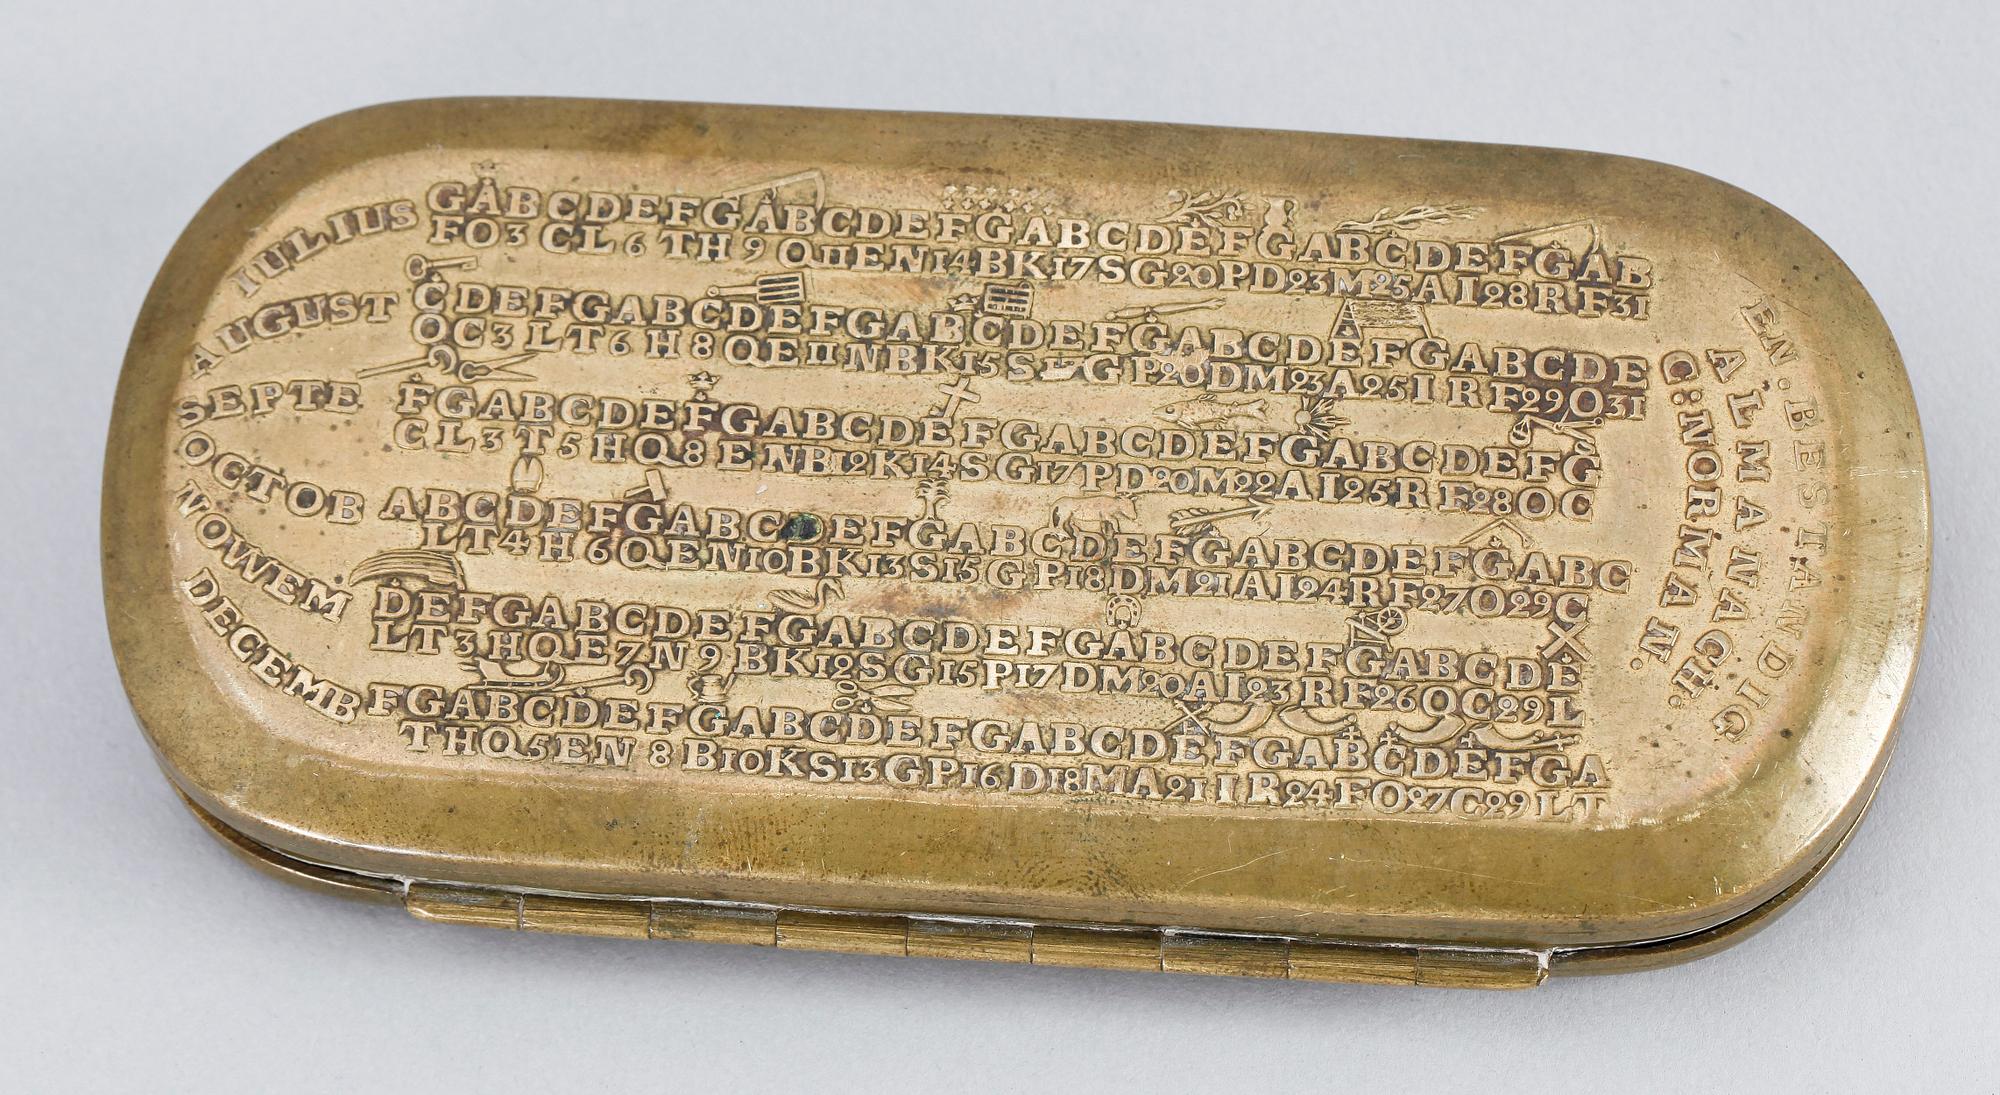 IULIUS GABCDEFGABCDEFGABCDEFGABCDEFGAB
FO3CL6TH9Q11EN14BK17SG20PD23M25AI28RF31
AUGUST CDEFGABCDEFGABCDEFGABCDEFGABCDE
OC3LT6H8QE11NBK15S17GP20DM23A25IRF29O31
SEPTE FGABCDEFGABCDEFGABCDEFGABCDEFG
CL3T5HQ8ENB12K14SG17PD20M22AI25RF28OC
OCTOB ABCDEFGABCDEFGABCDEFGABCDEFGABC
LT4H6QEN10BK13S15GP18DM21AI24RF27O29C
NOWEM DEFGABCDEFGABCDEFGABCDEFGABCDE
LT3HQE7N9BK12SG15P17DM20AI23RF26OC29L
DECEMB FGABCDEFGABCDEFGABCDEFGABCDEFGA
THQ5EN8B10KS13GP16D18MA21IR24FO27C29LT
EN. BESTANDIG
ALMANACH:
C: NORMAN.